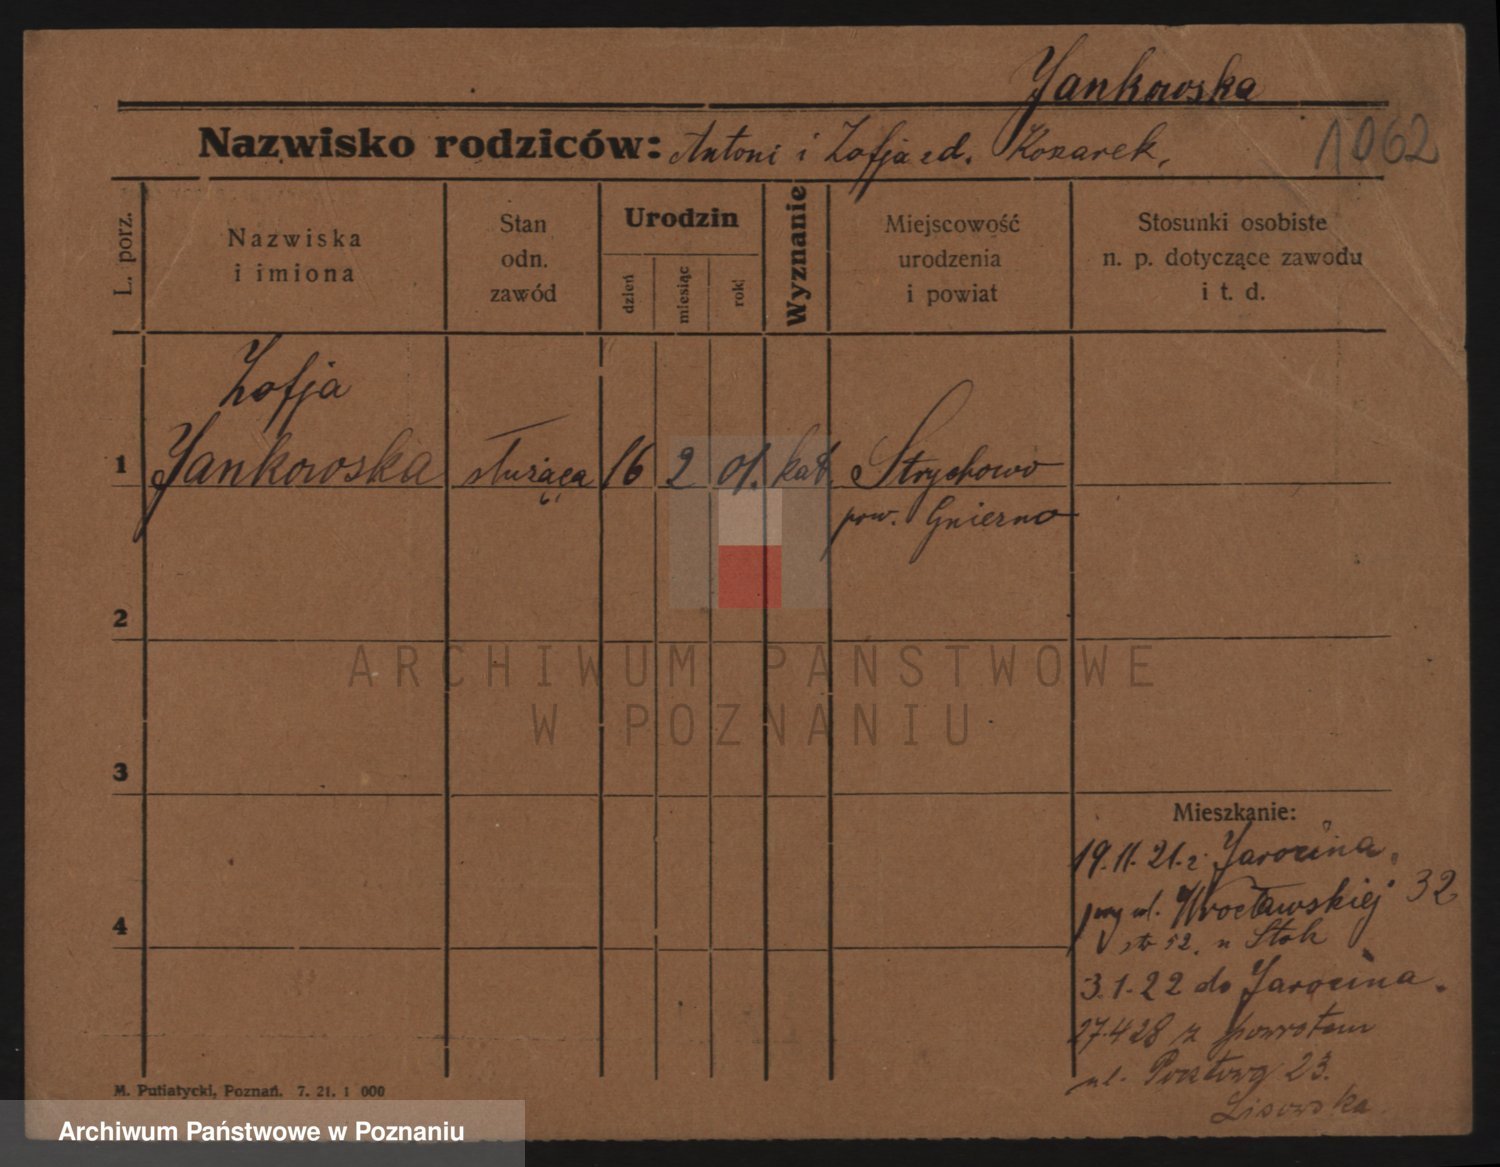 Jankowska
Nazwisko rodziców: Antoni i Zofja zd. Kozarek.
1062
L. porz.
Nazwiska
i imiona
Stan
odn.
zawód
Urodzin
dzień
miesiąc
rok
Wyznanie
Miejscowość
urodzenia
i powiat
Stosunki osobiste
n. p. dotyczące zawodu
i t. d.
Zofja
1 Jankowska służąca 16 2 01. kat. Strychowo
pow. Gniezno
2
ARCHIWUM PAŃSTWOWE
W POZNANIU
3
Mieszkanie:
19.11.21. z Jarocina
przy ul. Wrocławskiej 32
52. u Stok
4
3.1.22 do Jarocina.
27.4.28 z powrotem
ul. Pocztowa 23.
Lisowska.
M. Putiatycki, Poznań. 7. 21. 1 000
Archiwum Państwowe w Poznaniu